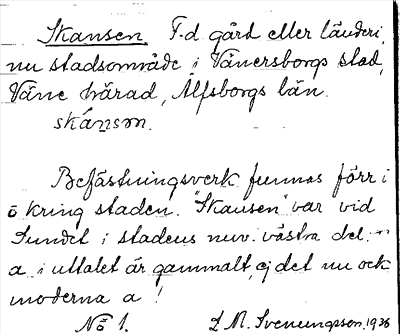 Skansen. F.d gård eller länderi,
nu stadsområde i Vänersborgs stad,
Väne härad, Älfsborgs län.
skánsøn.
Befästningsverk funnos förr i
o kring staden. "Skansen" var vid
Sundet i stadens nuv. västra del.
a i uttalet är gammalt, ej det nu ock
moderna a!
No 1. S. M. Svenungsson, 1926